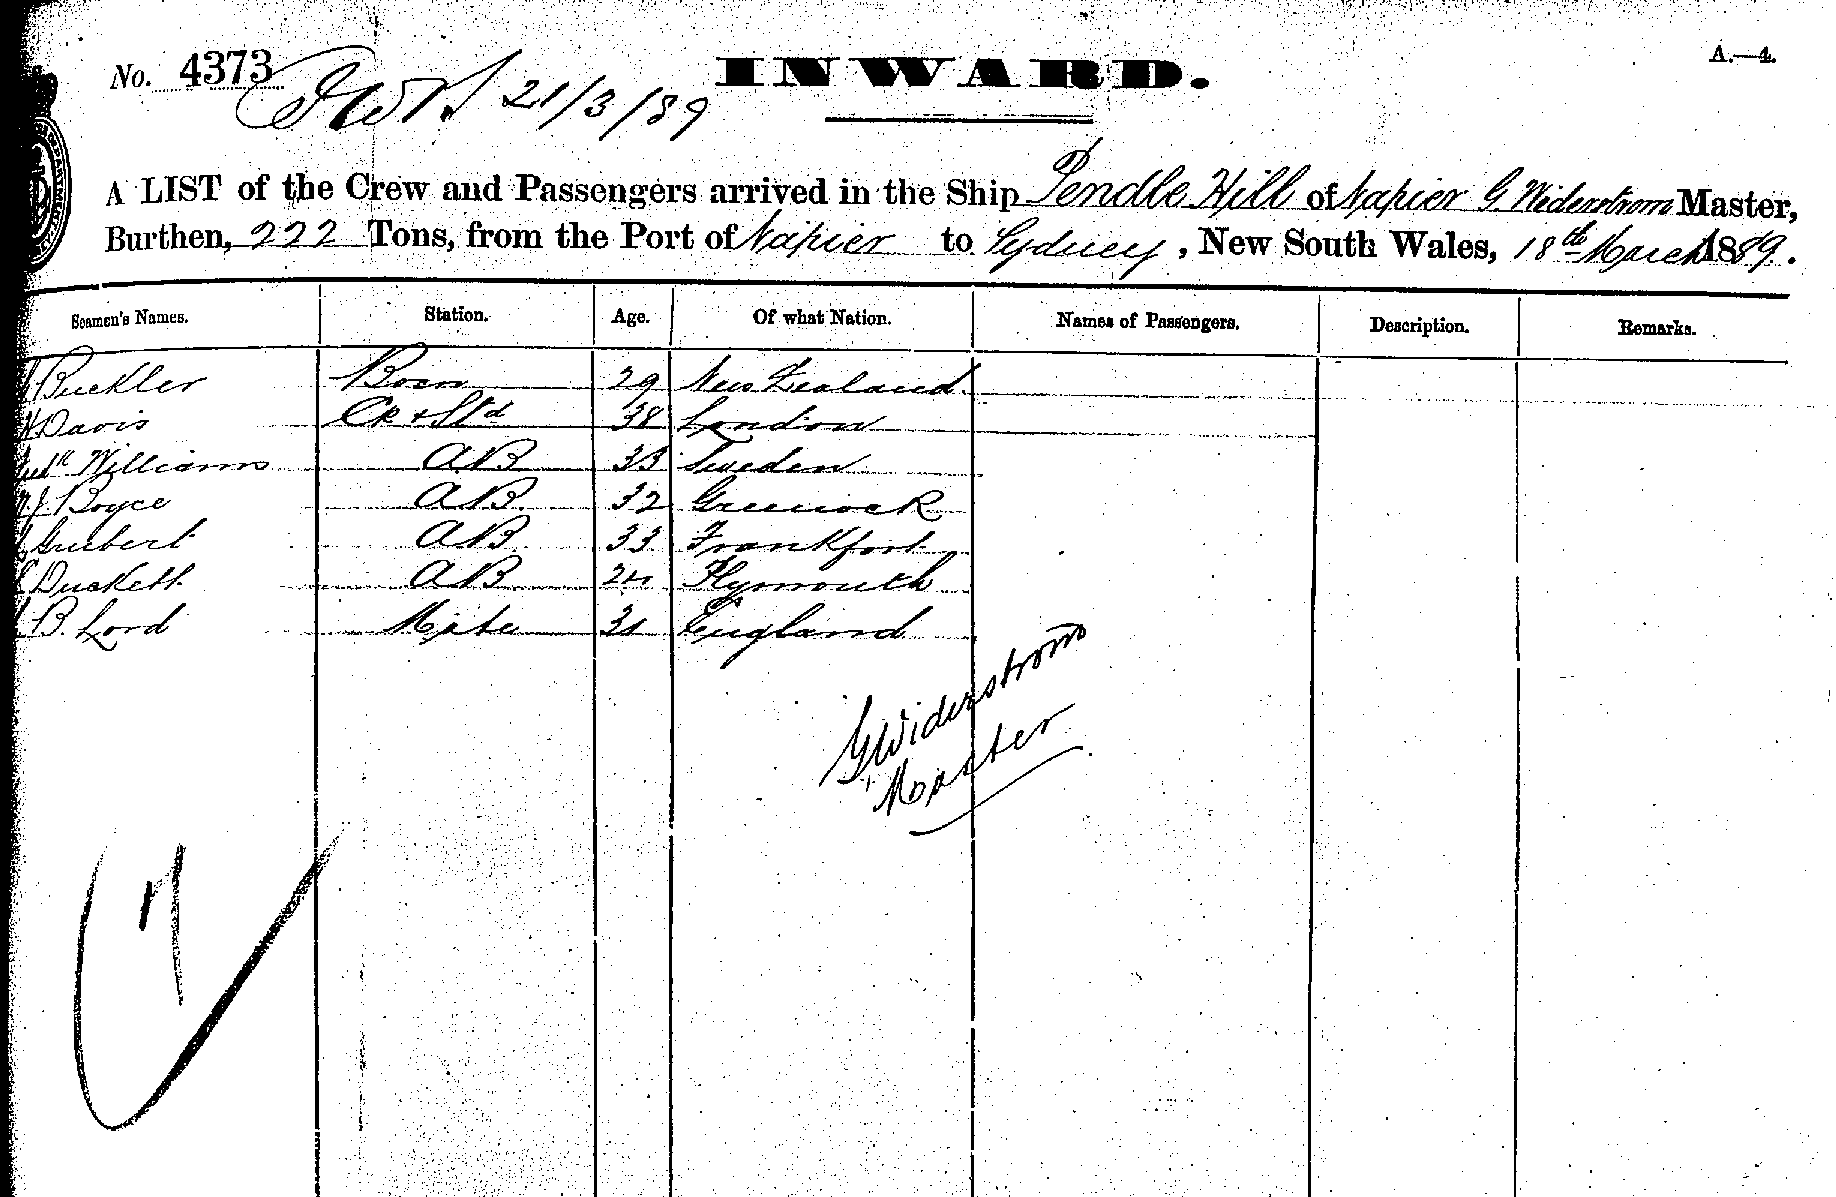 No. 4373 INWARD. A.—4.
21/3/89
A LIST of the Crew and Passengers arrived in the Ship Pendle Hill of Napier G. Widerstrom Master,
Burthen, 222 Tons, from the Port of Napier to Sydney, New South Wales, 18th March 1889.
Seamen's Names. Station. Age. Of what Nation. Names of Passengers. Description. Remarks.
Buckler Bosn 29 New Zealand
H Davis Ck & Std 38 London
Williams AB 33 Sweden
J. Boyce AB 32 Greenock
Grubert AB 33 Frankfort
Duckett AB 24 Plymouth
B. Lord Mate 31 England
G Widerstrom
Master